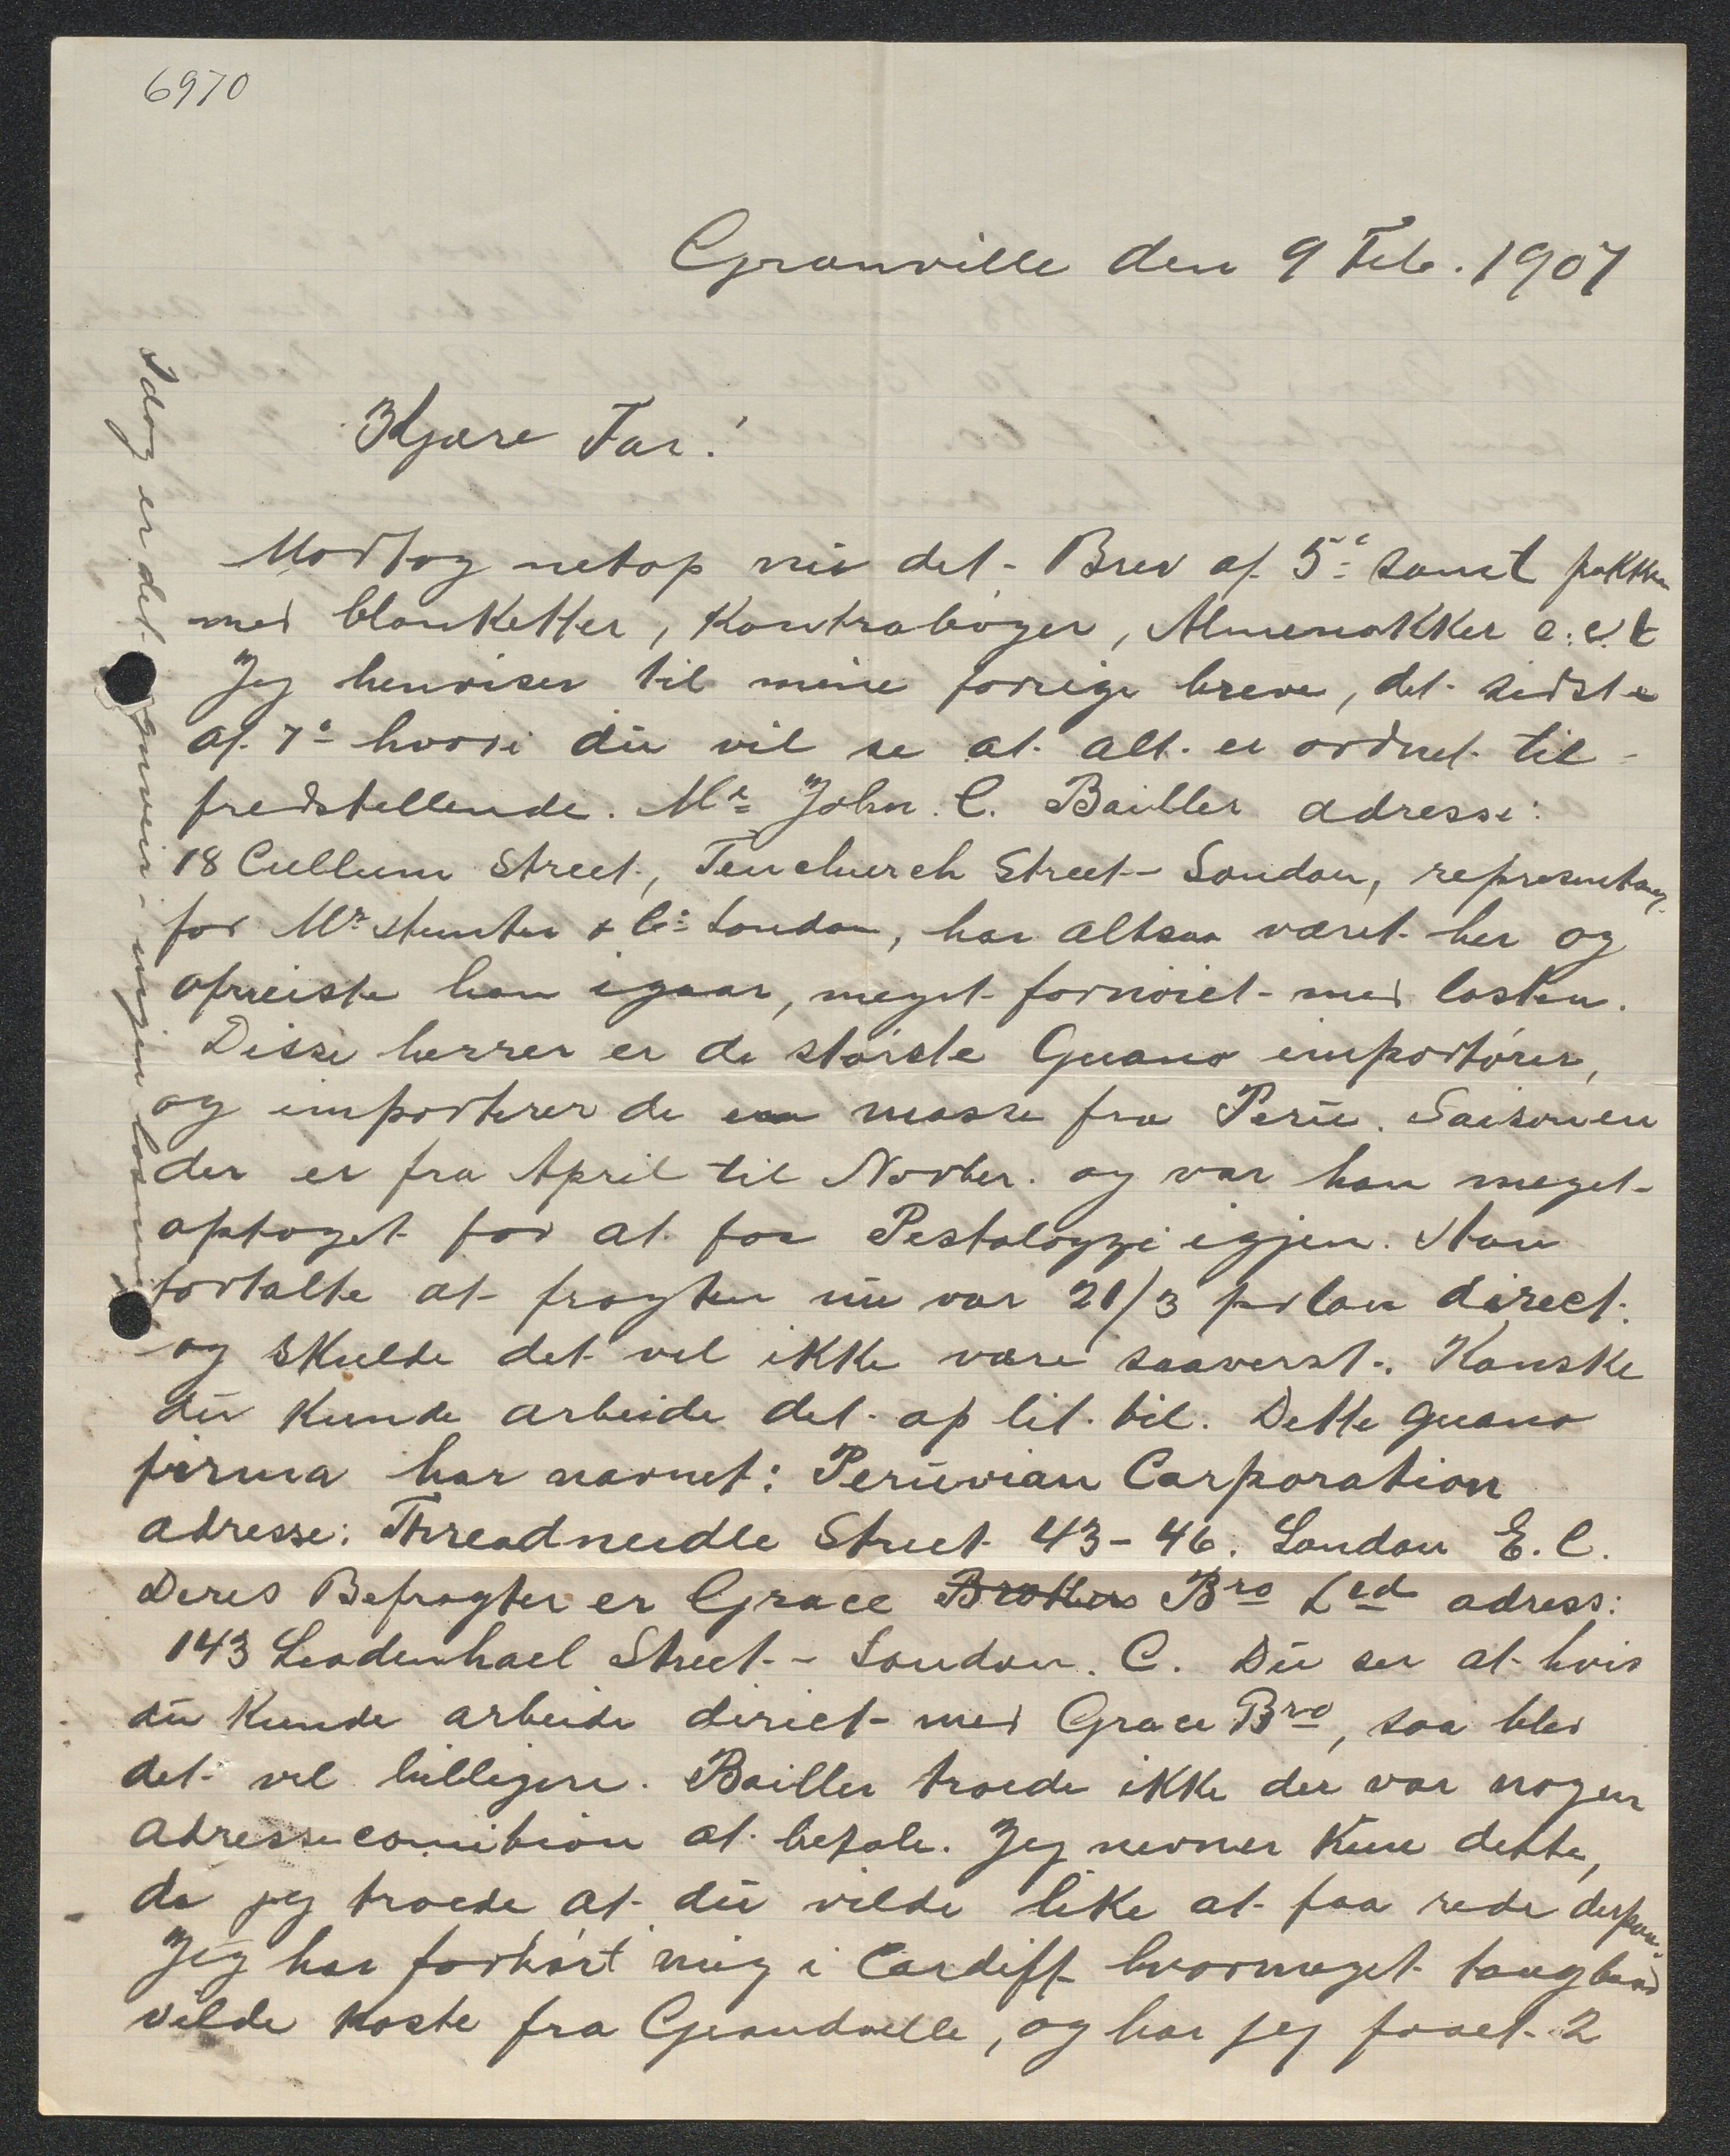 6970
Granville den 9 Feb. 1907
Kjære Far!
Modtog netop nu dit Brev af 5te samt pakken
med blanketter, Kontrabøger, Almenakker e.c.t
Jeg henviser til mine forrige breve, det sidste
af 7de hvori du vil se at alt er ordnet til-
fredstellende. Mr John C. Bailler adresse:
18 Cullum Street, Fenchurch Street - London, representant
for Mr Hunter & Co London, har altsaa været her og
afreiste han igaar, meget fornøiet med lasten.
Disse herrer er de største Guano importører,
og importerer de en masse fra Peru. Saisonen
der er fra April til Novber. og var han meget
optaget for at faa Pestalozzi igjen. Han
fortalte at fragten nu var 21/3 pr ton direct.
og skulde det vel ikke være saaverst. Kanske
du kunde arbeide det op lit til. Dette guano
firma har navnet: Peruvian Corporation
adresse: Threadneedle Street 43-46. London E.C.
Deres Befragter er Grace Brothers Bro Led adress:
143 Leadenhael Street - London. C. Du ser at hvis
du kunde arbeide direct med Grace Bro, saa blev
det vel billigere. Bailler troede ikke der var nogen
adressecomition at betale. Jeg nevner kun dette,
da jeg troede at du vilde like at faa rede derpaa.
Jeg har forhørt mig i Cardiff hvormeget taugbaad
vilde koste fra Grandville, og har jeg faaet 2
Idag er det ingen losning